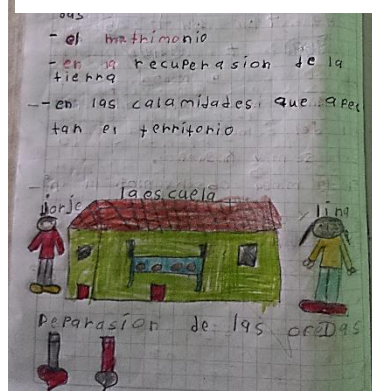 - el matrimonio
- en la recuperasion de la
tierra
- en las calamidades que afec
tan el territorio
la escuela
jorje
lina
Reparasion de las